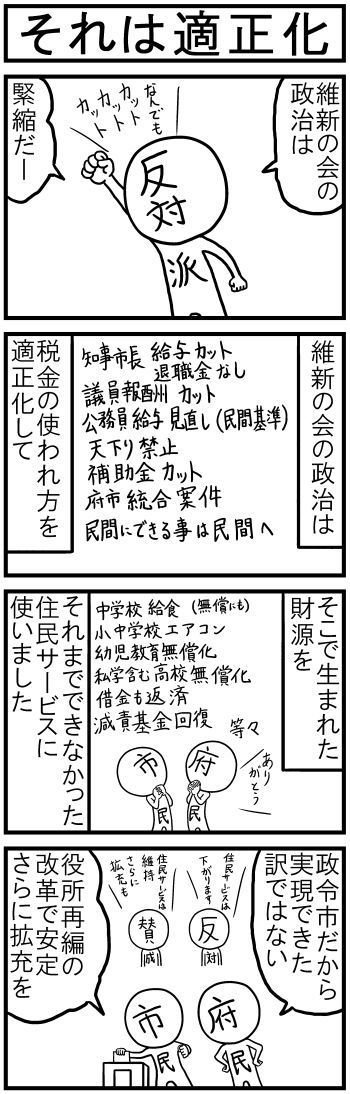 それは適正化
維新の会の
政治は
なんでも
カット
カット
カット
緊縮だー
反対
派
維新の会の政治は
知事市長 給与カット
退職金なし
議員報酬 カット
公務員給与 見直し(民間基準)
天下り禁止
補助金カット
府市統合案件
民間にできる事は民間へ
税金の使われ方を
適正化して
そこで生まれた
財源を
中学校給食 (無償にも)
小中学校エアコン
幼児教育無償化
私学含む高校無償化
借金も返済
減責基金回復 等々
ありがとう
府
民
市
民
それまでできなかった
住民サービスに
使いました
政令市だから
実現できた
訳ではない
住民サービスは
下がります
反
対
住民サービスは
維持
さらに
拡充も
賛
成
府
民
市
民
役所再編の
改革で安定
さらに拡充を